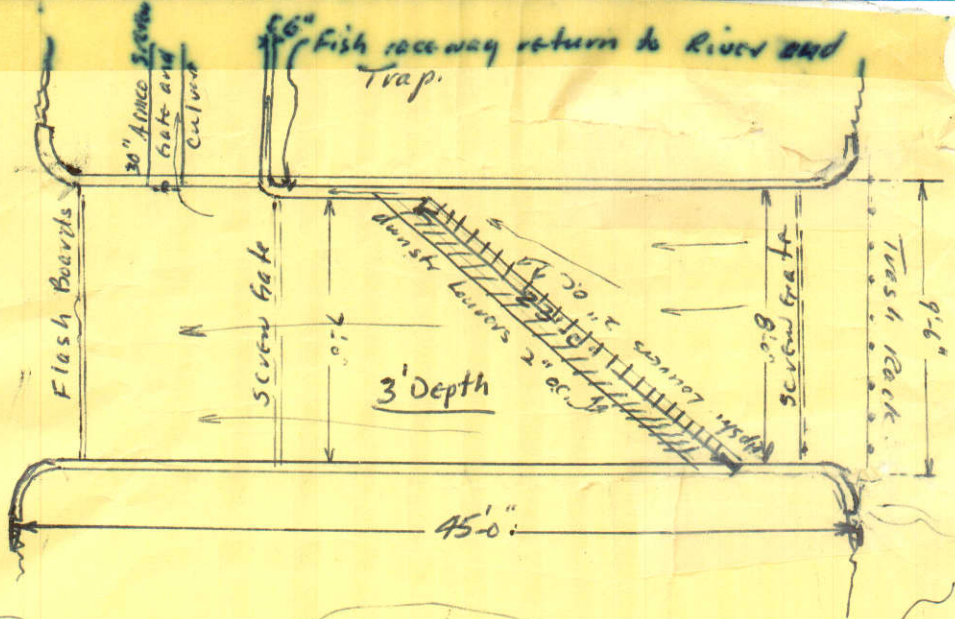 6" Fish raceway return to River and
Trap.
30" Armco Screw
Gate and
Culvert
Flash Boards
Screw Gate
7'-0"
3' Depth
dwnstr Louvers 2" oc.
Upstr. Louvers 2" o.c.
8'-0"
Screw Gate
Trash Rack
9'-6"
45'-0"